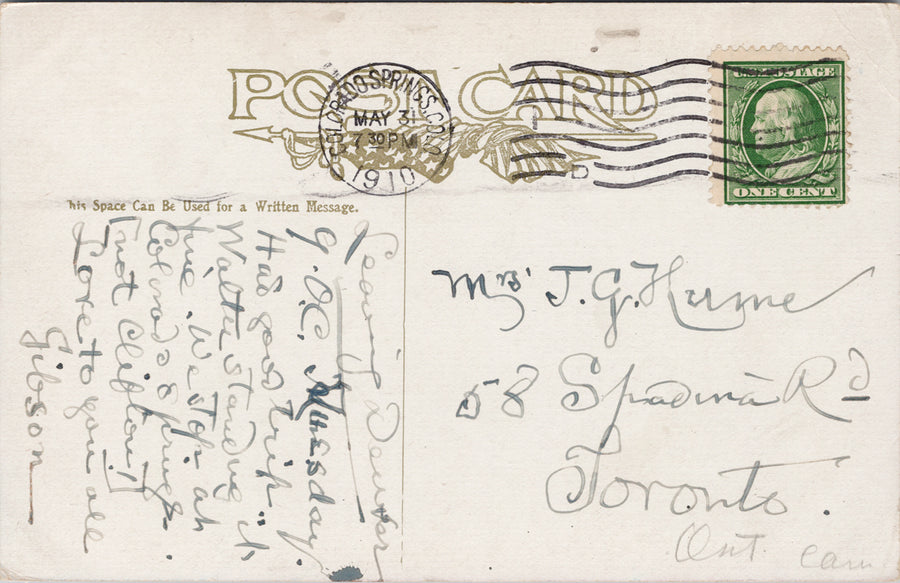 POST CARD
COLORADO SPRINGS, COLO.
MAY 31
7 30 PM
1910
D
U.S. POSTAGE
ONE CENT
his Space Can Be Used for a Written Message.
Leaving Denver
9. O.C. Tuesday.
Had good trip
Walter standing it
fine. We stop at
Colorado Springs.
(not Clifton!)
Love to you all
Gibson
Mrs J. G. Hume
58 Spadina Rd
Toronto.
Ont. Can